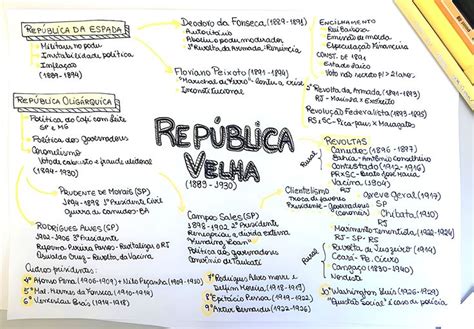 REPÚBLICA DA ESPADA
Militares no poder
Instabilidade política
Inflação
(1889-1894)
Deodoro da Fonseca (1889-1891)
Autoritário
Floriano Peixoto (1891-1894)
Inconstitucional
ENCILHAMENTO
Rui Barbosa
Emissão de moeda
Especulação Financeira
CONST. DE 1891
Estado laico
Revolta da Armada (1891-1894)
RJ - Marinha x Exército
Revolução Federalista (1893-1895)
RS e SC - Pica-paus x Maragatos
REPÚBLICA OLIGÁRQUICA
Política do Café com leite
SP e MG
Política dos governadores
Coronelismo
Voto de cabresto e fraude eleitoral
(1894-1930)
REPÚBLICA
VELHA
(1889-1930)
REVOLTAS
Rural
Canudos (1896-1897)
Bahia - Antônio Conselheiro
Contestado (1912-1916)
PR e SC - Beato José Maria
Vacina (1904)
Prudente de Morais (SP)
1894-1898 1º Presidente Civil
Guerra de Canudos - BA
Clientelismo
Troca de favores
Presidente - Governadores
Greve Geral (1917)
SP
Chibata (1910)
RJ
Tenentismo (1922-1924)
RJ - SP - RS
Rural
Revolta de Juazeiro (1914)
Ceará - Pe. Cícero
Cangaço (1830-1940)
Nordeste
Rodrigues Alves (SP)
1902-1906 3º Presidente
Reforma Pereira Passos - Revitalizar o RJ
Oswaldo Cruz - Revolta da Vacina
Campos Sales (SP)
1898-1902, 2º Presidente
Renegociação e dívida externa
"Funding Loan"
Política dos governadores
Convênio de Taubaté
Outros presidentes:
4º Afonso Pena (1906-1909) + Nilo Peçanha (1909-1910)
5º Mal. Hermes da Fonseca (1910-1914)
6º Venceslau Brás (1914-1918)
7º Rodrigues Alves morre e
Delfim Moreira (1918-1919)
8º Epitácio Pessoa (1919-1922)
9º Artur Bernardes (1922-1926)
10º Washington Luís (1926-1930)
"Questão Social" é caso de polícia